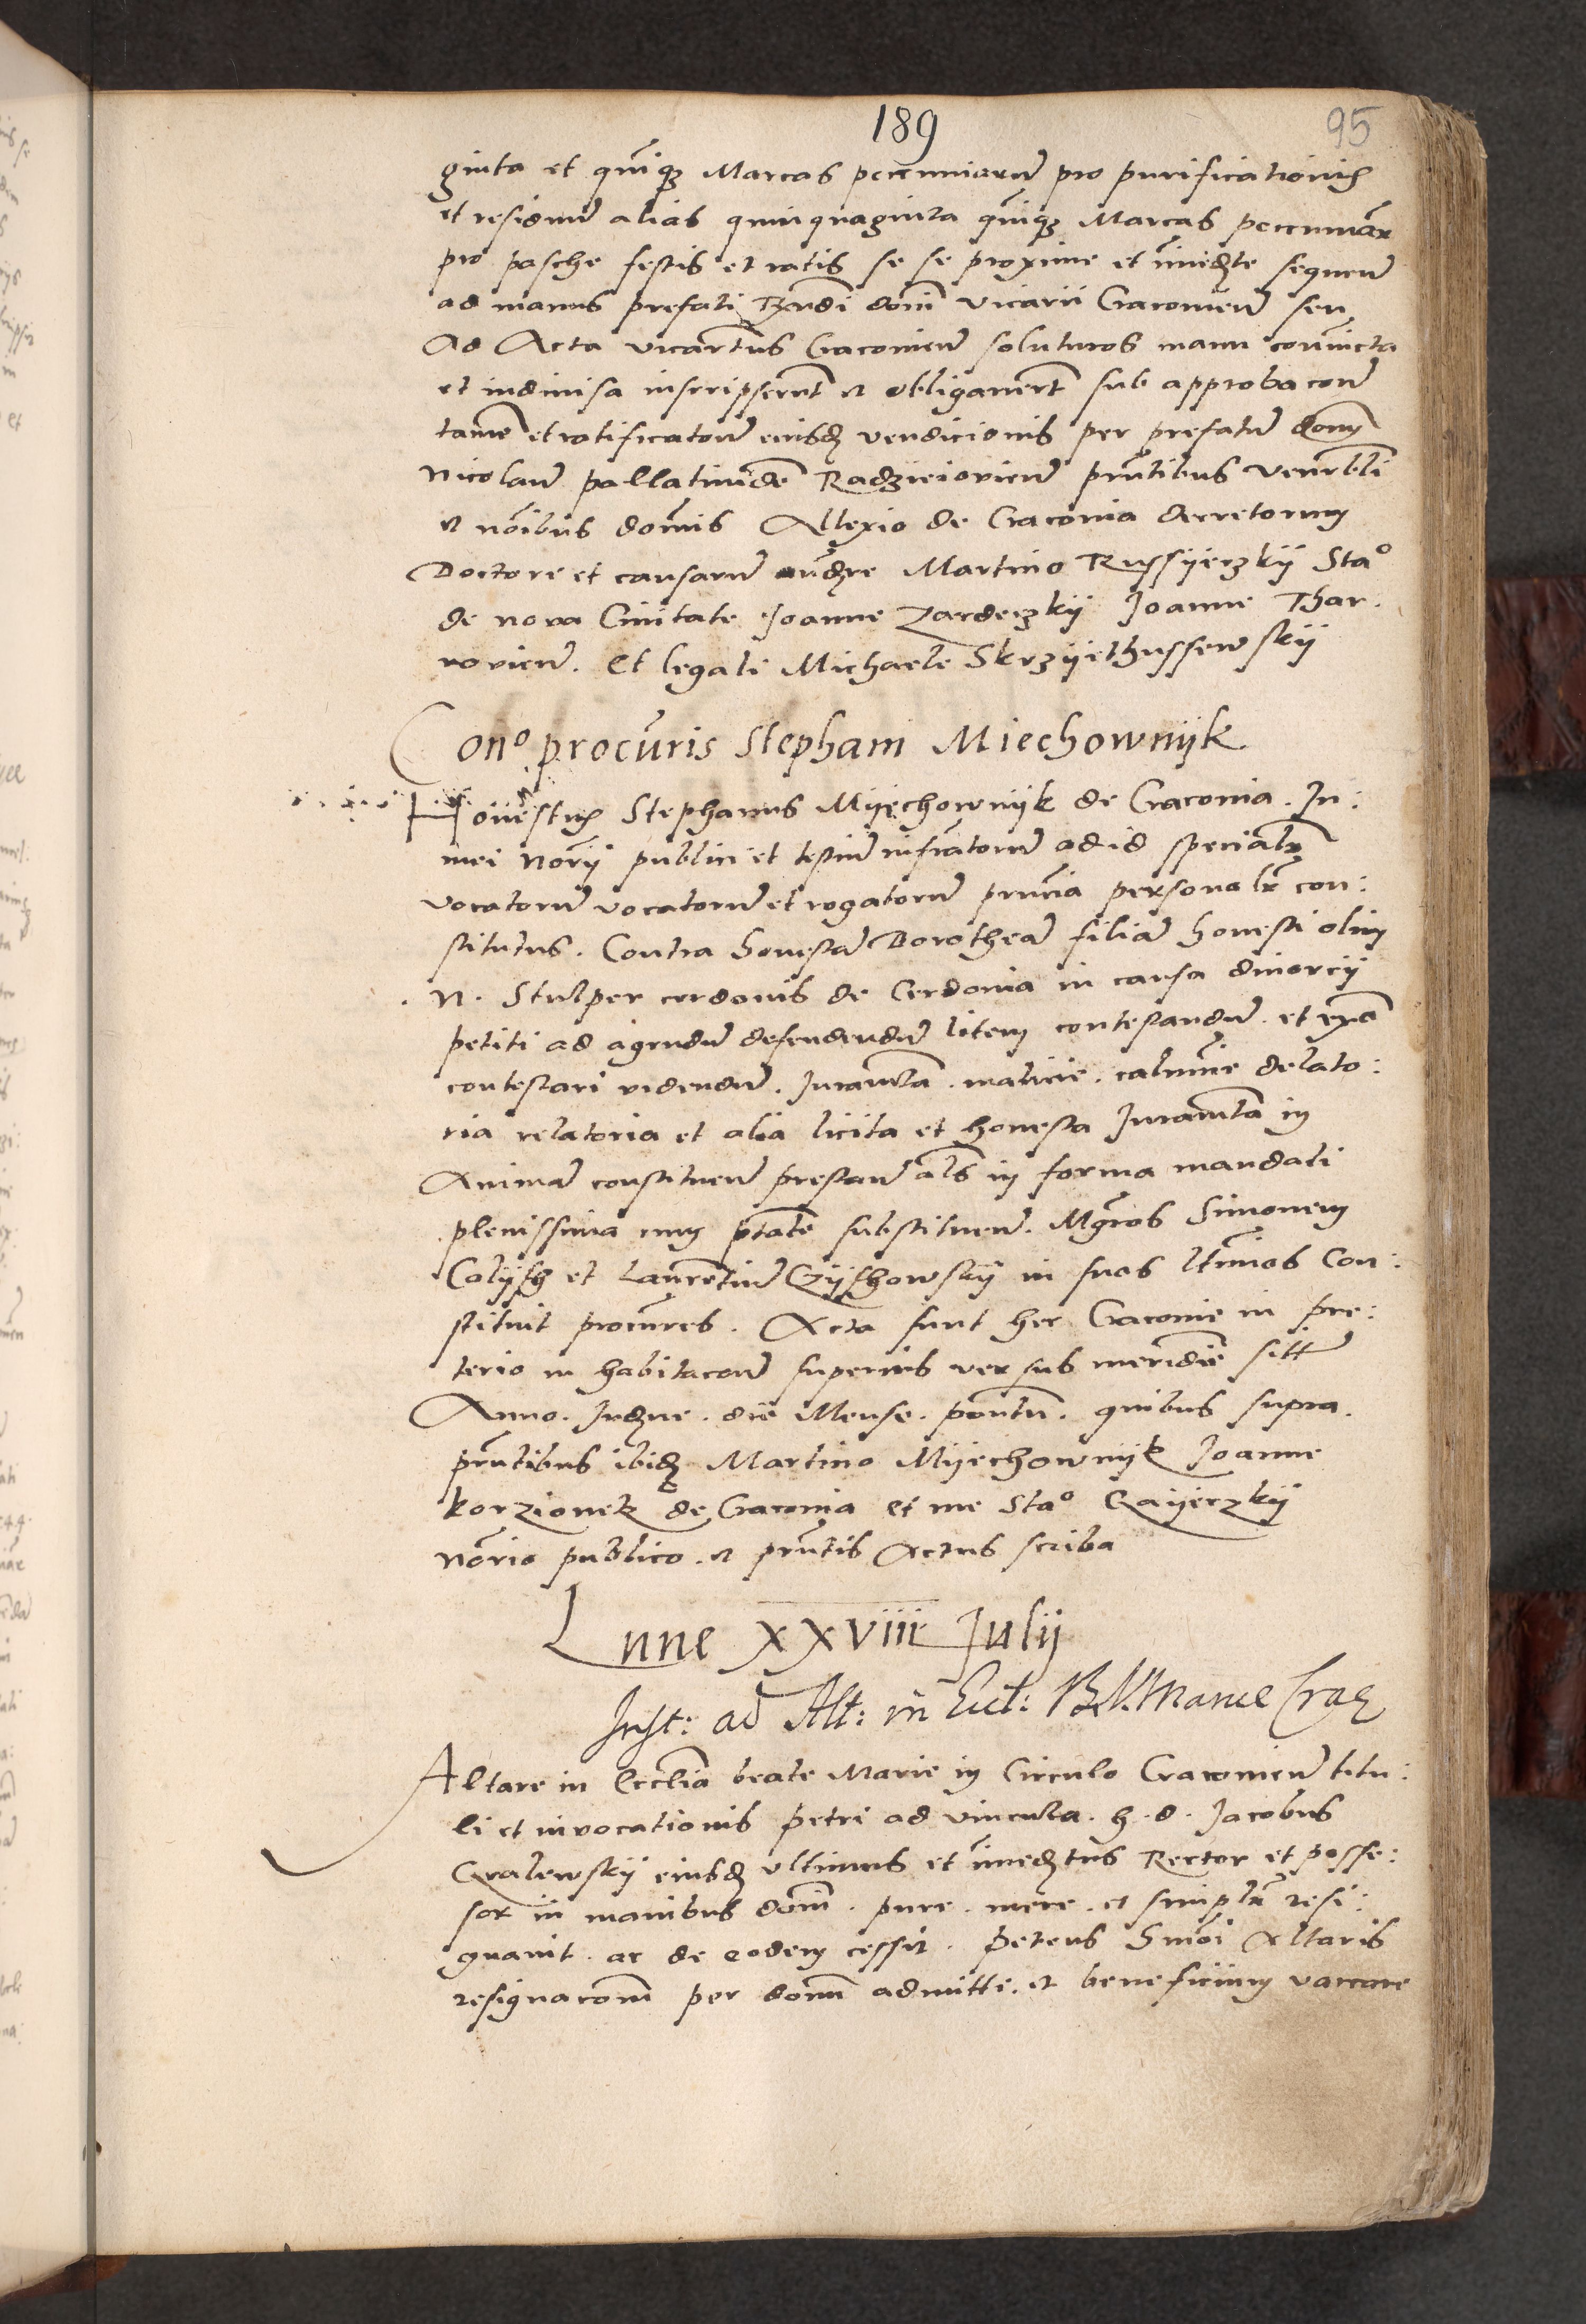 189
95
ginta et quīqz Marcas peccuniarū pro purificationis
et residuū alias quinquaginta quīqz Marcas peccuniar
pro pasche festis et ratis se se proxime et īmedte sequen
ad manus prefati Rndi dōni vicarii Cracovien seu
Ad Acta vicariatus Cracovien soluturos manu coniūcta
et indivisa inscripserūt et obligaverūt sub approbacōne
tamē et ratificatione eiusdē vendicionis per prefatū dōm
Nicolaū pallatinidē Radzieiovien pn̄tibus venerbli
et nōibus dōmis Allexio de Cracovia decretorum
Doctore et causarū audre Martino Russyeczky Sta°
de nova Civitate Joanne Zardeczky Joanne Thar
novien. Et legali Michaele Skrzyethussewsky
Con° procuris Stephani Miechownyk
Honestus Stephanus Myechownyk de Cracovia. In:
mei Norii publici et testiū infrātorū ad id specialr
vocatorū vocatorū et rogatorū pn̄cia personalr con:
stitutus. Contra honestā Dorotheā filiā honesti olim
N. Stulper cerdonis de Cerdonia in causa divorcij
petiti ad agendū defendendū litem contestandū et ex ad
contestari videndū. Juramta. malicie. calumnie delato:
ria relatoria et alia licita et honesta Juramta in
Animā constituen prestan als in forma mandati
plenissima cum ptate substituen. Mgros Simonem
Colysh et Laurētiū Czyshowsky in suos ltimos Con:
stituit procures. Acta sunt hec Cracovie in pre:
torio in habitacone superius versus meridiē sitt
Anno. Indne. die Mense. pontu. quibus supra.
pn̄tibus ibidē Martino Myechownyk Joanne
korzionek de Cracovia et me Sta° Gayeczky
nōrio publico. et pn̄tis Actus scriba
Lune XXVIII Julij
Inst: ad Alt: in Eccl: B.V. Mariae Crac
Altare in Ecclīa beate Marie in Circulo Cracovien titu:
li et invocationis Petri ad vincula. h. d. Jacobus
Gralewsky eiusdē ultimus et īmedtus Rector et posse:
sor in manibus dōni. pure. mere. et simplr resi:
gnavit. ac de eodem cessit. petens hmōi Altaris
resignaconē per donū admitti. et beneficium vaccare